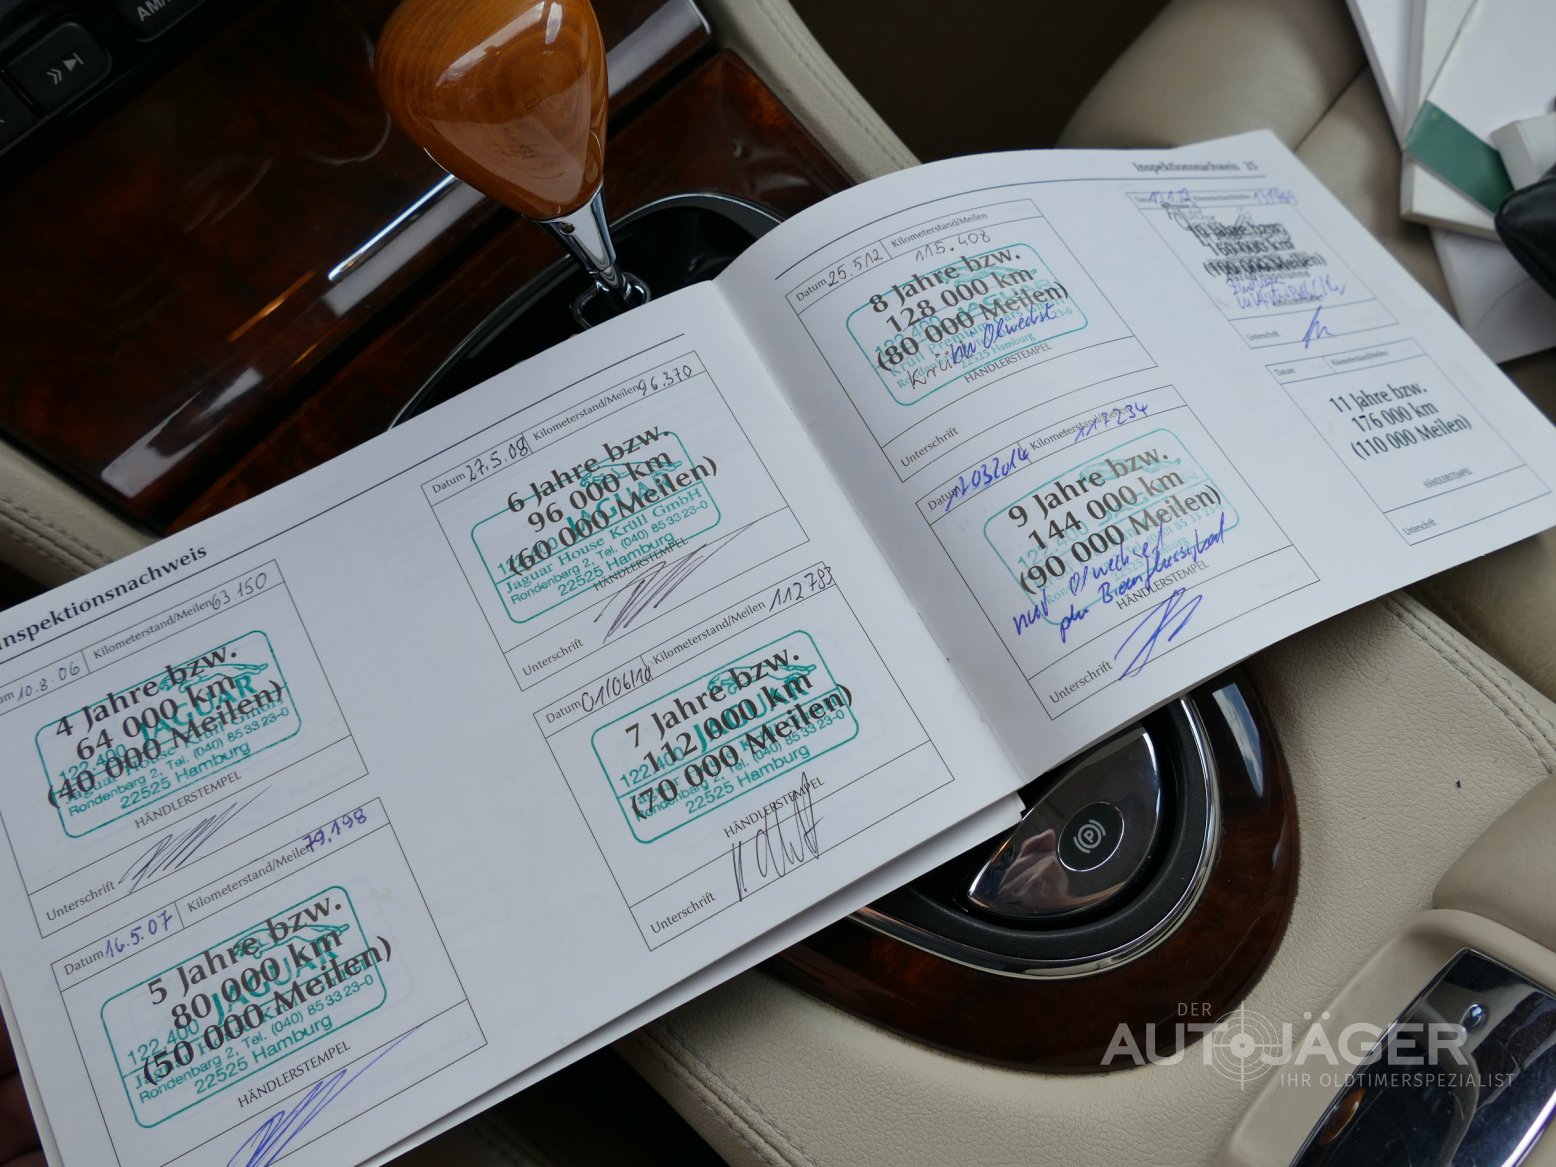 AM/
Inspektionsnachweis
um 10.8.06 Kilometerstand/Meilen 63 150
4 Jahre bzw.
64 000 km
(40 000 Meilen)
122 400 JAGUAR
Jaguar House Krüll GmbH
Rondenbarg 2, Tel. (040) 85 33 23-0
22525 Hamburg
HÄNDLERSTEMPEL
Unterschrift
Datum 16.5.07 Kilometerstand/Meilen 79.198
5 Jahre bzw.
80 000 km
(50 000 Meilen)
122 400 JAGUAR
Rondenbarg 2, Tel. (040) 85 33 23-0
22525 Hamburg
HÄNDLERSTEMPEL
Datum 27.5.08 Kilometerstand/Meilen 96.370
6 Jahre bzw.
96 000 km
(60 000 Meilen)
JAGUAR
Jaguar House Krüll GmbH
Rondenbarg 2, Tel. (040) 85 33 23-0
22525 Hamburg
HÄNDLERSTEMPEL
Unterschrift
Datum 01/06/10 Kilometerstand/Meilen 112 783
7 Jahre bzw.
112 000 km
(70 000 Meilen)
122 400 JAGUAR
Rondenbarg 2, Tel. (040) 85 33 23-0
22525 Hamburg
HÄNDLERSTEMPEL
Unterschrift
Inspektionsnachweis 25
Datum 25.5.12 Kilometerstand/Meilen
115.408
8 Jahre bzw.
128 000 km
(80 000 Meilen)
22525 Hamburg
HÄNDLERSTEMPEL
Unterschrift
Datum Kilometerstand/Meilen 117234
9 Jahre bzw.
144 000 km
(90 000 Meilen)
nur Ölwechsel
plus Bremsflüssigkeit
HÄNDLERSTEMPEL
Unterschrift
Datum Kilometerstand/Meilen
10 Jahre bzw.
160 000 km
(100 000 Meilen)
Unterschrift
Datum Kilometerstand/Meilen
11 Jahre bzw.
176 000 km
(110 000 Meilen)
HÄNDLERSTEMPEL
Unterschrift
P
DER
AUTOJÄGER
IHR OLDTIMERSPEZIALIST